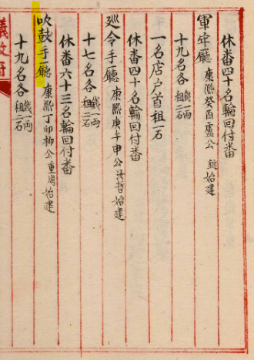 休番四十名輪回付番
軍牢廳 康熙癸酉盧公 始建
十九名各 錢二両 租二石
一名店戶首租一石
休番四十名輪回付番
巡令手廳 康熙庚午申公 哲始建
十七名各 錢一両 租二石
休番六十三名輪回付番
吹鼓手廳 康熙丁卯柳公重 始建
十九名各 錢一両 租二石
議政府